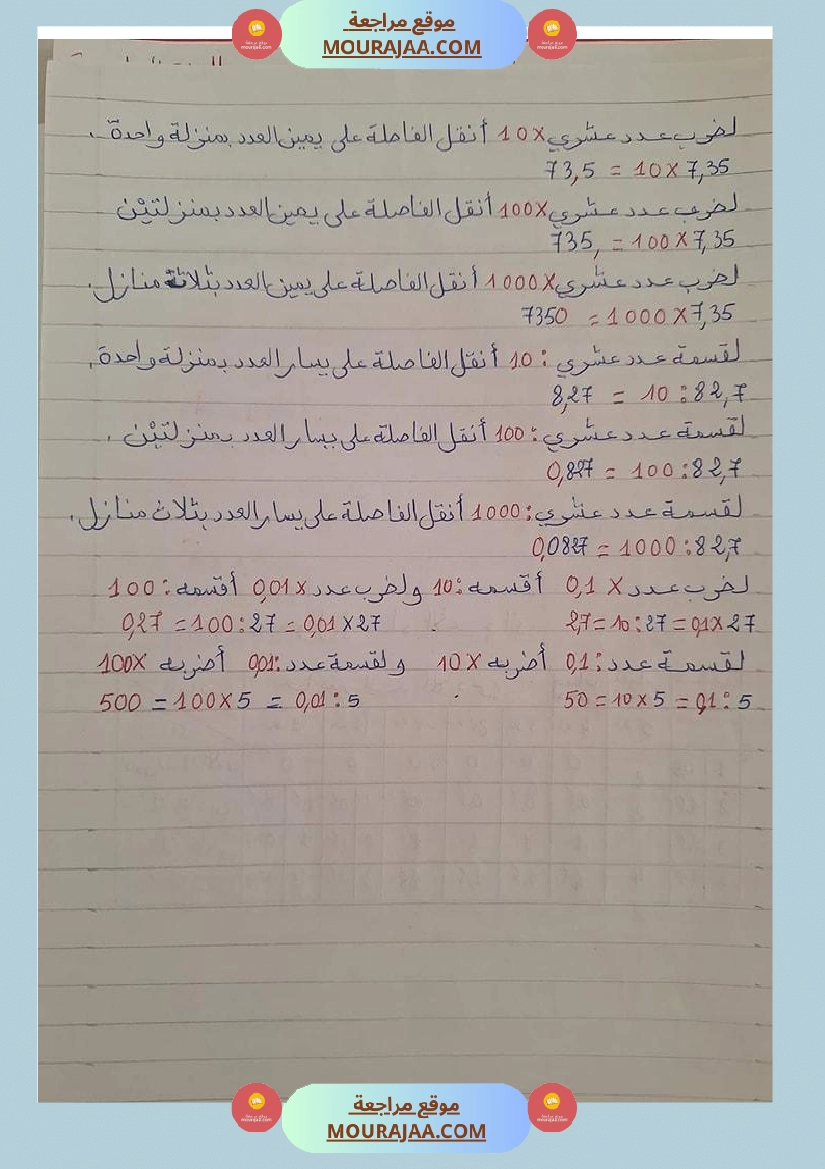 موقع مراجعة
MOURAJAA.COM
لضرب عدد عشري ×10 أنقل الفاصلة على يمين العدد بمنزلة واحدة.
7,35 ×10 = 73,5
لضرب عدد عشري ×100 أنقل الفاصلة على يمين العدد بمنزلتيْن
7,35 ×100 = 735,
لضرب عدد عشري ×1000 أنقل الفاصلة على يمين العدد بثلاثة منازل.
7,35 ×1000 = 7350
لقسمة عدد عشري :10 أنقل الفاصلة على يسار العدد بمنزلة واحدة.
82,7 :10 = 8,27
لقسمة عدد عشري :100 أنقل الفاصلة على يسار العدد بمنزلتيْن.
82,7 :100 = 0,827
لقسمة عدد عشري :1000 أنقل الفاصلة على يسار العدد بثلاث منازل.
82,7 :1000 = 0,0827
لضرب عدد × 0,1 أقسمه :10 ولضرب عدد ×0,01 أقسمه :100
27 ×0,1 = 27 :10 = 2,7 27 ×0,01 = 27 :100 = 0,27
لقسمة عدد :0,1 أضربه ×10 ولقسمة عدد :0,01 أضربه ×100
5 :0,1 = 5 ×10 = 50 5 :0,01 = 5 ×100 = 500
موقع مراجعة
MOURAJAA.COM